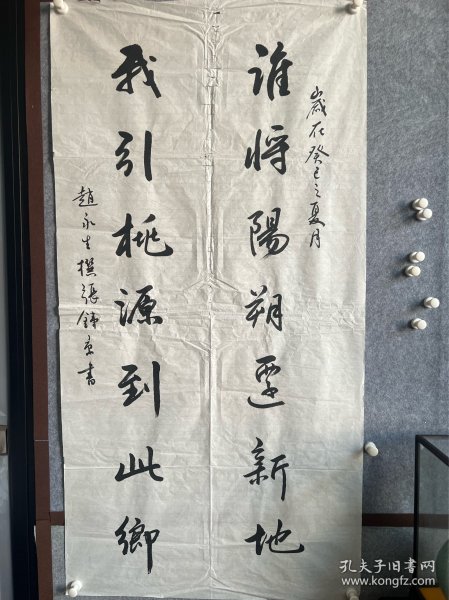 歲在癸巳之夏月
誰將陽朔遷新地
我引桃源到此鄉
趙永生撰張鍾京書
孔夫子旧书网
www.kongfz.com